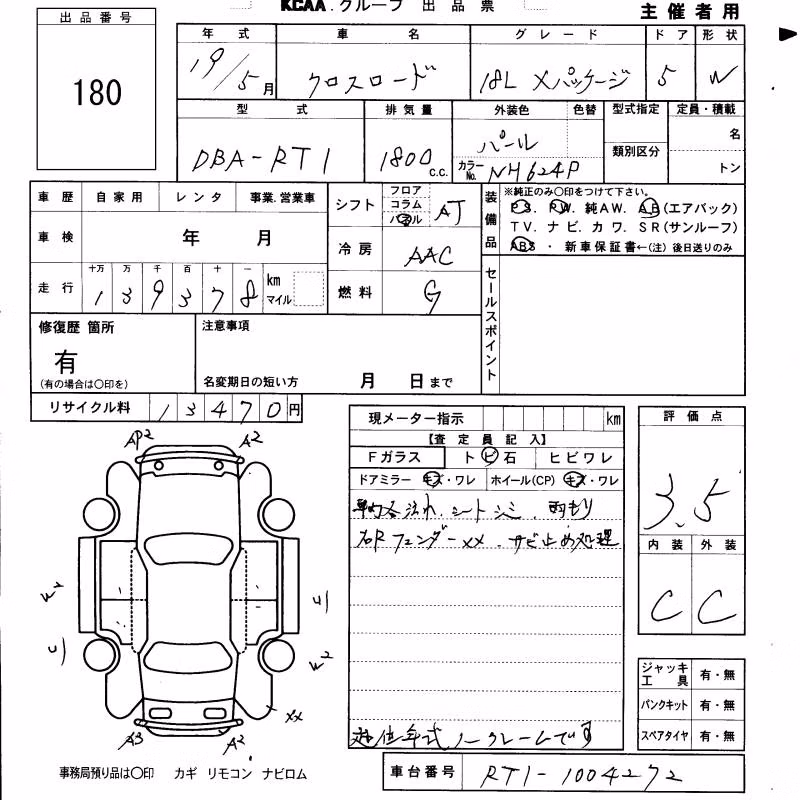 KCAA.グループ 出品票
主催者用
出品番号
180
年式 車名 グレード ドア 形状
19/5月 クロスロード 18L Xパッケージ 5 W
型式 排気量 外装色 色替 型式指定 定員・積載
DBA-RT1 1800 c.c. パール 類別区分 名
カラーNo. NH624P トン
車歴 自家用 レンタ 事業.営業車
シフト フロア コラム パネル AT
装備品 ※純正のみ○印をつけて下さい。
PS. PW. 純AW. AB(エアバック)
TV. ナビ. カワ. SR(サンルーフ)
ABS ・ 新車保証書←(注)後日送りのみ
車検 年 月
冷房 AAC
走行 十万 万 千 百 十 一
139378 km マイル
燃料 G
セールスポイント
修復歴 箇所
有
(有の場合は○印を)
注意事項
名変期日の短い方 月 日まで
リサイクル料 13470円
現メーター指示 km
【査定員記入】
Fガラス トビ石 ヒビワレ
ドアミラー キズ・ワレ ホイール(CP) キズ・ワレ
シートシミ. 雨もり
右Rフェンダーxx. サビ止め処理
低年式ノークレームです
評価点
3.5
内装 外装
C C
AP2 A2
xx
A3 A2
ジャッキ工具 有・無
パンクキット 有・無
スペアタイヤ 有・無
事務局預り品は○印 カギ リモコン ナビロム
車台番号 RT1-1004272